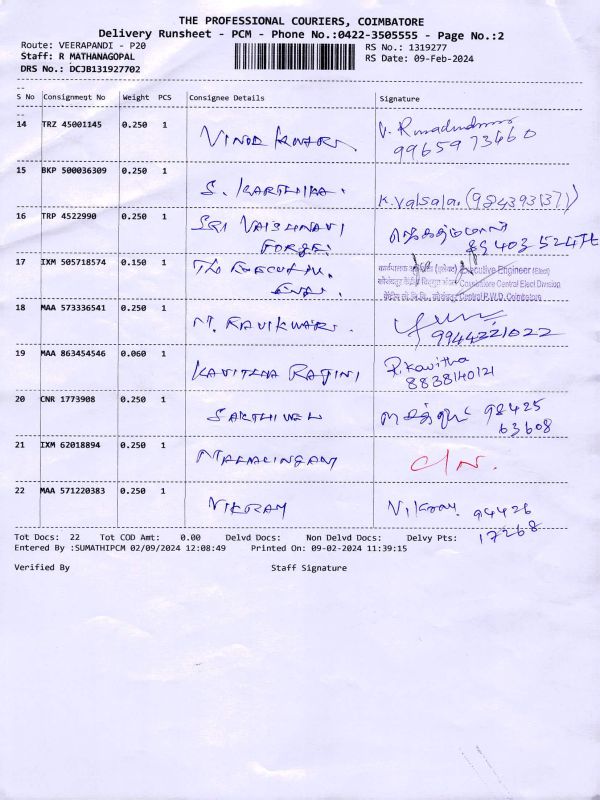 THE PROFESSIONAL COURIERS, COIMBATORE
Delivery Runsheet - PCM - Phone No.:0422-3505555 - Page No.:2
Route: VEERAPANDI - P20
RS No.: 1319277
Staff: R MATHANAGOPAL
RS Date: 09-Feb-2024
DRS No.: DCJB131927702
S No Consignment No Weight PCS Consignee Details Signature
14 TRZ 45001145 0.250 1 VINOD KUMAR. V.
9965973460
15 BKP 500036309 0.250 1 S. KARTHIKA. K. Valsala. (9843931377)
16 TRP 4522990 0.250 1 SRI VAISHNAVI
FORGE.
17 IXM 505718574 0.150 1 THE EXECUTIVE Executive Engineer (Elect)
ENGR. Coimbatore Central Elect Division
Central P.W.D. Coimbatore
18 MAA 573336541 0.250 1 M. RAVIKUMAR.
9944221022
19 MAA 863454546 0.060 1 KAVITHA RAJINI P. Kavitha
8838140121
20 CNR 1773908 0.250 1 SAKTHIVEL 98425
63608
21 IXM 62018894 0.250 1 MAHALINGAM C/N.
22 MAA 571220383 0.250 1 VIKRAM Vikram. 94426
17268
Tot Docs: 22 Tot COD Amt: 0.00 Delvd Docs: Non Delvd Docs: Delvy Pts:
Entered By :SUMATHIPCM 02/09/2024 12:08:49 Printed On: 09-02-2024 11:39:15
Verified By Staff Signature